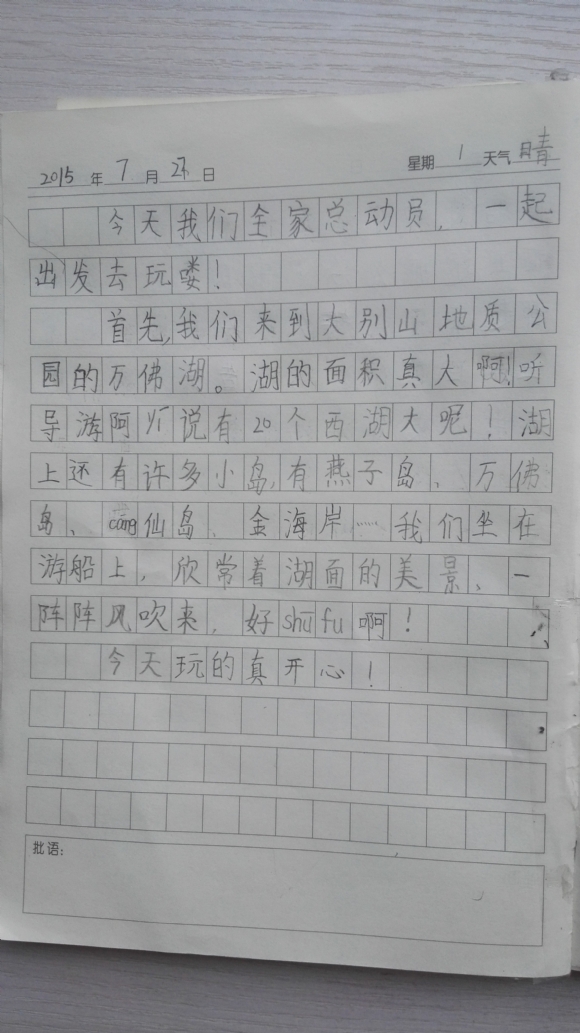 2015 年 7 月 27 日 星期 1 天气 晴
今天我们全家总动员，一起
出发去玩喽！
首先，我们来到大别山地质公
园的万佛湖。湖的面积真大啊！听
导游阿yí说有20个西湖大呢！湖
上还有许多小岛，有燕子岛、万佛
岛、cáng仙岛、金海岸……我们坐在
游船上，欣常着湖面的美景、一
阵阵风吹来，好shū fu啊！
今天玩的真开心！
批语：